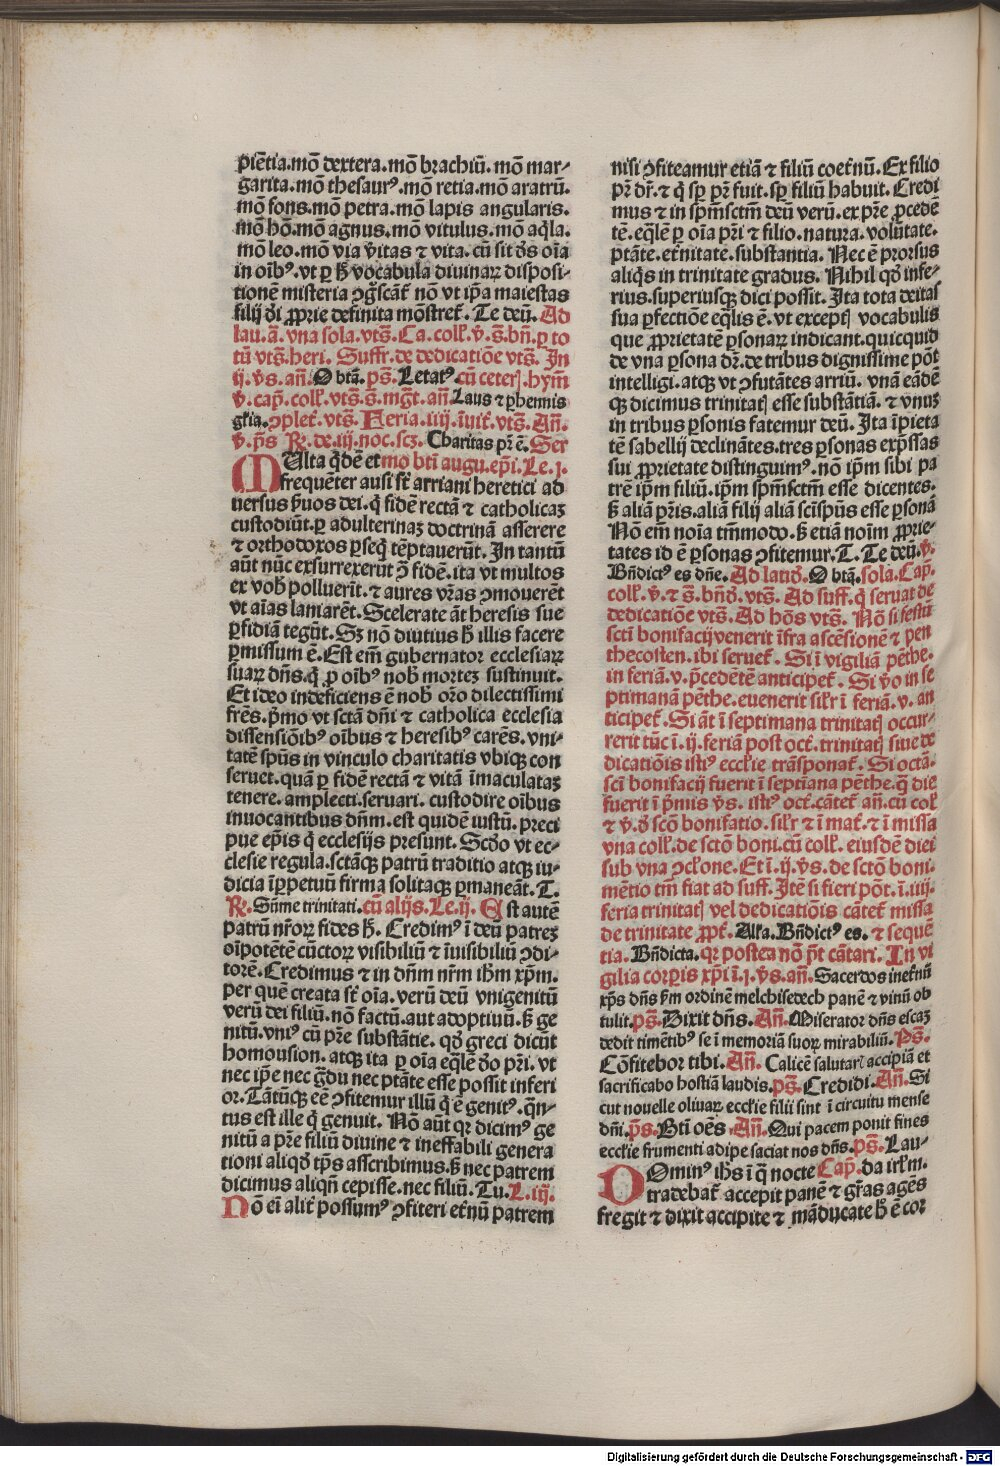 piẽtia.mõ dextera.mõ brachiũ.mõ mar⸗
garita.mõ thesaurꝰ.mõ retia.mõ aratrũ.
mõ fons.mõ petra.mõ lapis angularis.
mõ hõ.mõ agnus.mõ vitulus.mõ aq̃la.
mõ leo.mõ via v̄itas ⁊ vita.cũ sit d̄s oĩa
in oĩbꝰ.vt ꝑ h̄ vocabula diuinaꝝ disposi⸗
tionẽ misteria ꝯg̃scãt̃ nõ vt ip̃a maiestas
filij d̄i ꝓprie definita mõstret̃.Te deũ.Ad
lau.ã.vna sola.vts̃.Ca.coll̃.v̄.s̃.bñ.ꝑ to
tũ vts̃.heri. Suffr̃.de dedicatiõe vts̃. In
ij.v̄s.añ.O btã.ps̃.Letatꝰ.cũ ceterꝭ.hym̃
v̄.cap̃.coll̃.vts̃.s̃.mg̃t.añ.Laus ⁊ ꝑhennis
gl̃ia.ꝯplet̃.vts̃.Feria.iiij.ĩuit̃.vts̃.Añ.
v̄.p̃s ℟.de.iij.noc.scꝫ.Charitas pr̃ ẽ.Ser
MUlta q̃dẽ et mo bt̃i augu.ep̃i.Le.j.
frequẽter ausi st̃ arriani heretici ad
uersus s̃uos dei.q̃ fidẽ rectã ⁊ catholicaꝫ
custodiũt.ꝑ adulterinaꝫ doctrinã asserere
⁊ orthodoxos ꝑseq̃ tẽptauerũt.In tantũ
aũt nũc exsurrexerũt ꝯ̃ fidẽ.ita vt multos
ex vob̃ polluerĩt.⁊ aures vr̃as ꝯmouerẽt
vt aĩas laniarẽt.Scelerate ãt heresis sue
ꝑfidiã tegũt.Sꝫ nõ diutius h̄ illis facere
ꝑmissum ẽ.Est em̃ gubernator ecclesiaꝝ
suaꝝ dñs.q̃ ꝓ oĩbꝰ nob̃ morteꝫ sustinuit.
Et ideo indeficiens ẽ nob̃ or̃o dilectissimi
frẽs.p̃mo vt sctã dñi ⁊ catholica ecclesia
dissensiõibꝰ oĩbus ⁊ heresibꝰ carẽs.vni⸗
tatẽ sp̃us in vinculo charitatis vbiqꝫ con
seruet.quã ꝑ fidẽ rectã ⁊ vitã ĩmaculataꝫ
tenere.amplecti.seruari.custodire oĩbus
inuocantibus dñm.est quidẽ iustũ.preci
pue ep̃is q̃ ecclesijs presunt.Scd̃o vt ec⸗
clesie regula.sctãqꝫ patrũ traditio atqꝫ iu⸗
dicia ĩꝑpetuũ firma solitaqꝫ ꝑmaneãt.T.
℟.Sũme trinitati.cũ alijs.Le.ij. Est autẽ
patrũ nr̃oꝝ fides h̄. Credimꝰ ĩ deũ patreꝫ
oĩpotẽtẽ cũctoꝝ visibiliũ ⁊ ĩuisibiliũ ꝯdi⸗
torẽ.Credimus ⁊ in dñm nr̃m ih̃m xp̃m.
per quẽ creata st̃ oĩa.verũ deũ vnigenitũ
verũ dei filiũ.nõ factũ.aut adoptiuũ.s̃ ge
nitũ.vniꝰ cũ pr̃e substãtie. qd̃ greci dicũt
homousion.atqꝫ ita ꝑ oĩa eq̃lẽ d̃o pr̃i.vt
nec ip̃e nec g̃du nec p̃tãte esse possit inferi
or.Tãtũqꝫ eẽ ꝯfitemur illũ q̃ ẽ genitꝰ.q̃n⸗
tus est ille q̃ genuit. Nõ aũt qꝛ dicimꝰ ge
nitũ a pr̃e filiũ diuine ⁊ ineffabili genera
tioni aliqd̃ tp̃s asscribimus.s̃ nec patrem
dicimus aliqñ cepisse.nec filiũ.Tu.L.iij.
NÕ eĩ alit̃ possumꝰ ꝯfiteri et̃nũ patrem
nisi ꝯfiteamur etiã ⁊ filiũ coet̃nũ.Ex filio
pr̃ dr̃.⁊ q̃ sp̃ pr̃ fuit.sp̃ filiũ habuit.Credi
mus ⁊ in sp̃msctm̃ deũ verũ.ex pr̃e ꝓcedẽ
tẽ.eq̃lẽ ꝑ oĩa pr̃i ⁊ filio.natura.volũtate.
p̃tãte.et̃nitate.substantia. Nec ẽ prorsus
aliq̃s in trinitate gradus. Nihil qd̃ infe⸗
rius.superiusqꝫ dici possit. Ita tota deitas
sua ꝑfectiõe eq̃lis ẽ.vt exceptꝭ vocabulis
que ꝓprietatẽ ꝑsonaꝝ indicant.quicquid
de vna ꝑsona dr̃.de tribus dignissime põt
intelligi.atqꝫ vt ꝯfutãtes arriũ. vnã eãdẽ
qꝫ dicimus trinitatꝭ esse substãtiã.⁊ vnuꝫ
in tribus ꝑsonis fatemur deũ.Ita ĩpieta
tẽ sabellij declinãtes.tres ꝑsonas exp̃ssas
sui ꝓprietate distinguimꝰ.nõ ip̃m sibi pa
trẽ ip̃m filiũ.ip̃m sp̃msctm̃ esse dicentes.
s̃ aliã pr̃is.aliã filij aliã sc̃isp̃us esse ꝑsonã
Nõ em̃ noĩa tm̃modo.s̃ etiã noĩm ꝓprie⸗
tates id ẽ ꝑsonas ꝯfitemur.T.Te deũ.v̄.
Bñdictꝰ es dñe.Ad latiɗ.O btã.sola.Cap̃.
coll̃.v̄.⁊ s̃.bñɗ.vts̃. Ad suff.q̃ seruat̃ de
dedicatiõe vts̃. Ad hõs vts̃. Nõ si festũ
scti bonifacij venerit ĩfra ascẽsionẽ ⁊ pen
thecosten.ibi seruet̃. Si ĩ vigiliã pẽthe.
in feriã.v.p̃cedẽtẽ anticipet̃. Si v̄o in se
ptimanã pẽthe.euenerit sil̃r ĩ feriã.v.an
ticipet̃.Si ãt ĩ septimana trinitatꝭ occur⸗
rerit tũc ĩ.ij.feriã post oct̃.trinitatꝭ siue de
dicatiõis istiꝰ eccl̃ie trãsponat̃. Si octã.
sc̃i bonifacij fuerit ĩ septĩana pẽthe.q̃ die
fuerit ĩ p̃mis v̄s.istiꝰ oct̃.cãtet̃ añ.cũ coll̃
⁊ v̄.d̃ scõ bonifatio.sil̃r ⁊ ĩ mat̃.⁊ ĩ missa
vna coll̃.de sctõ boni.cũ coll̃. eiusdẽ diei
sub vna ꝯcl̃one.Et ĩ.ij.v̄s.de sctõ boni.
mẽtio tm̃ fiat ad suff.Itẽ si fieri põt.ĩ.iiij.
feria trinitatꝭ vel dedicatiõis cãtet̃ missa
de trinitate ꝓpt̃.Alla.Bñdictꝰ es.⁊ sequẽ
tia.Bñdicta.qꝛ postea nõ p̃t cãtari. In vi
gilia corꝑis xp̃i ĩ.j.v̄s.añ.Sacerdos inet̃nũ
xp̃s dñs s̃m ordinẽ melchisedech panẽ ⁊ vinũ ob
tulit.ps̃.Dixit dñs.Añ.Miserator dñs escaꝫ
dedit timẽtibꝰ se ĩ memoriã suoꝝ mirabiliũ.Ps̃.
Cõfitebor tibi.Añ.Calicẽ salutarꝭ accipiã et
sacrificabo hostiã laudis.ps̃.Credidi.Añ.Si
cut nouelle oliuaꝝ eccl̃ie filii sint ĩ circuitu mense
dñi.ps̃.Bt̃i oẽs.Añ.Qui pacem ponit fines
eccl̃ie frumenti adipe saciat nos dñs.ps̃.Lau⸗
DOminꝰ ih̃s ĩ q̃ nocte Cap̃.da irl̃m.
tradebat̃ accepit panẽ ⁊ gr̃as agẽs
fregit ⁊ dixit accipite ⁊ mãducate h̄ ẽ cor
Digitalisierung gefördert durch die Deutsche Forschungsgemeinschaft - DFG